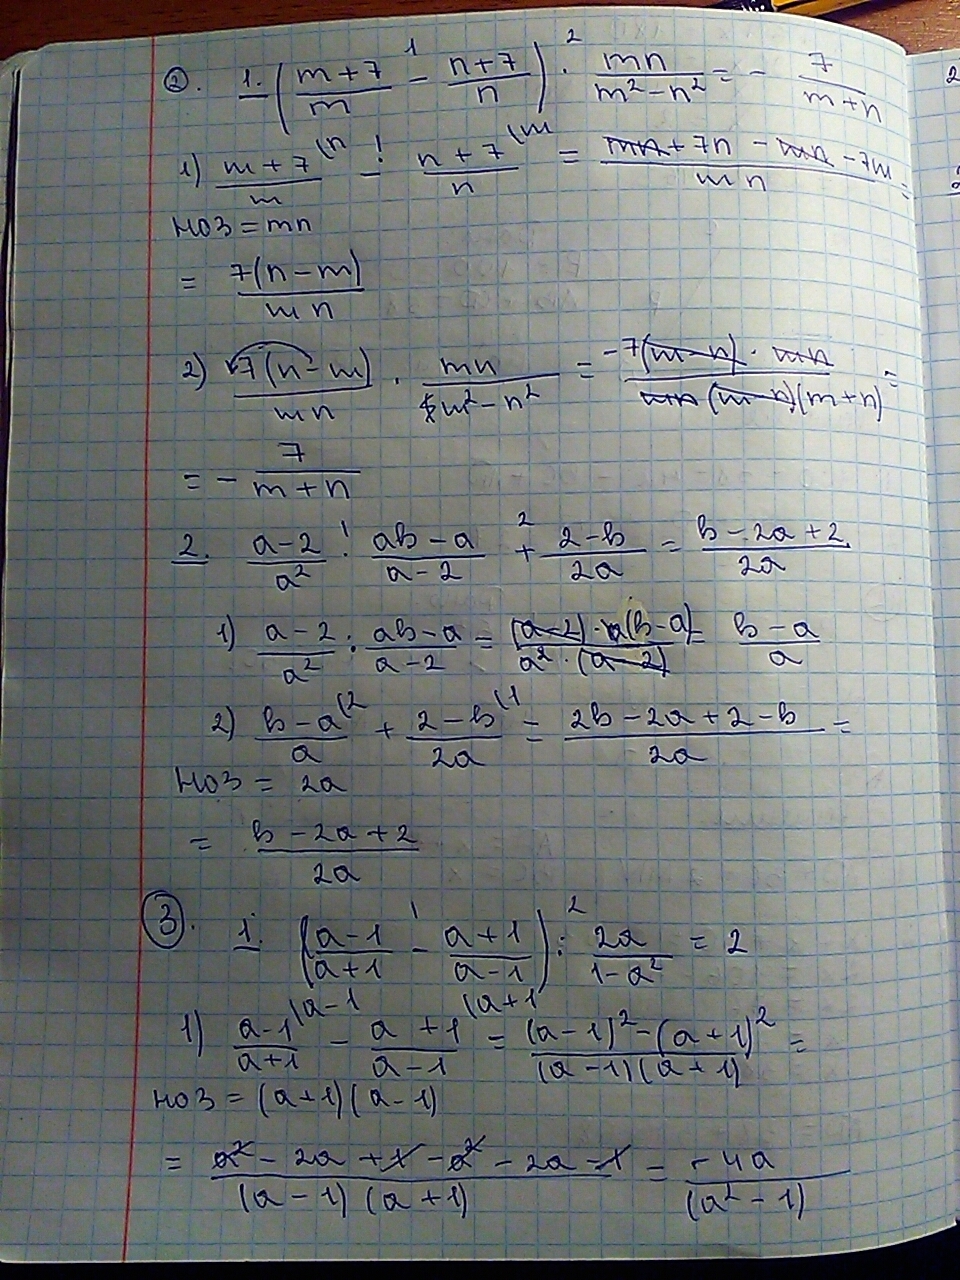 ②. 1. ((m+7)/m -¹ (n+7)/n) ·² mn/(m²-n²) = - 7/(m+n)
1) (m+7)/m \n -! (n+7)/n \m = (mn+7n-mn-7m)/(mn) =
НОЗ = mn
= 7(n-m)/(mn)
2) 7(n-m)/(mn) · mn/(m²-n²) = (-7(m-n)·mn)/(mn(m-n)(m+n)) =
= - 7/(m+n)
2. (a-2)/a² ·¹ (ab-a)/(a-2) +² (2-b)/(2a) = (b-2a+2)/(2a)
1) (a-2)/a² · (ab-a)/(a-2) = ((a-2)·a(b-a))/(a²·(a-2)) = (b-a)/a
2) (b-a)/a \2 + (2-b)/(2a) \1 = (2b-2a+2-b)/(2a) =
НОЗ = 2a
= (b-2a+2)/(2a)
③. 1. ((a-1)/(a+1) -¹ (a+1)/(a-1)) :² 2a/(1-a²) = 2
1) (a-1)/(a+1) \a-1 - (a+1)/(a-1) \a+1 = ((a-1)²-(a+1)²)/((a-1)(a+1)) =
НОЗ = (a+1)(a-1)
= (a²-2a+1-a²-2a-1)/((a-1)(a+1)) = -4a/(a²-1)